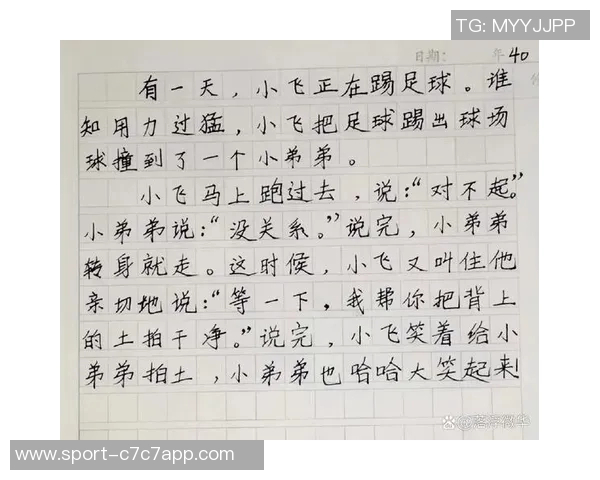 TG: MYYJJPP
日期: 年 40
有一天，小飞正在踢足球。谁
知用力过猛，小飞把足球踢出球场
球撞到了一个小弟弟。
小飞马上跑过去，说：“对不起。”
小弟弟说：“没关系。”说完，小弟弟
转身就走。这时候，小飞又叫住他
亲切地说：“等一下，我帮你把背上
的土拍干净。”说完，小飞笑着给小
弟弟拍土，小弟弟也哈哈大笑起来
www.sport-c7c7app.com